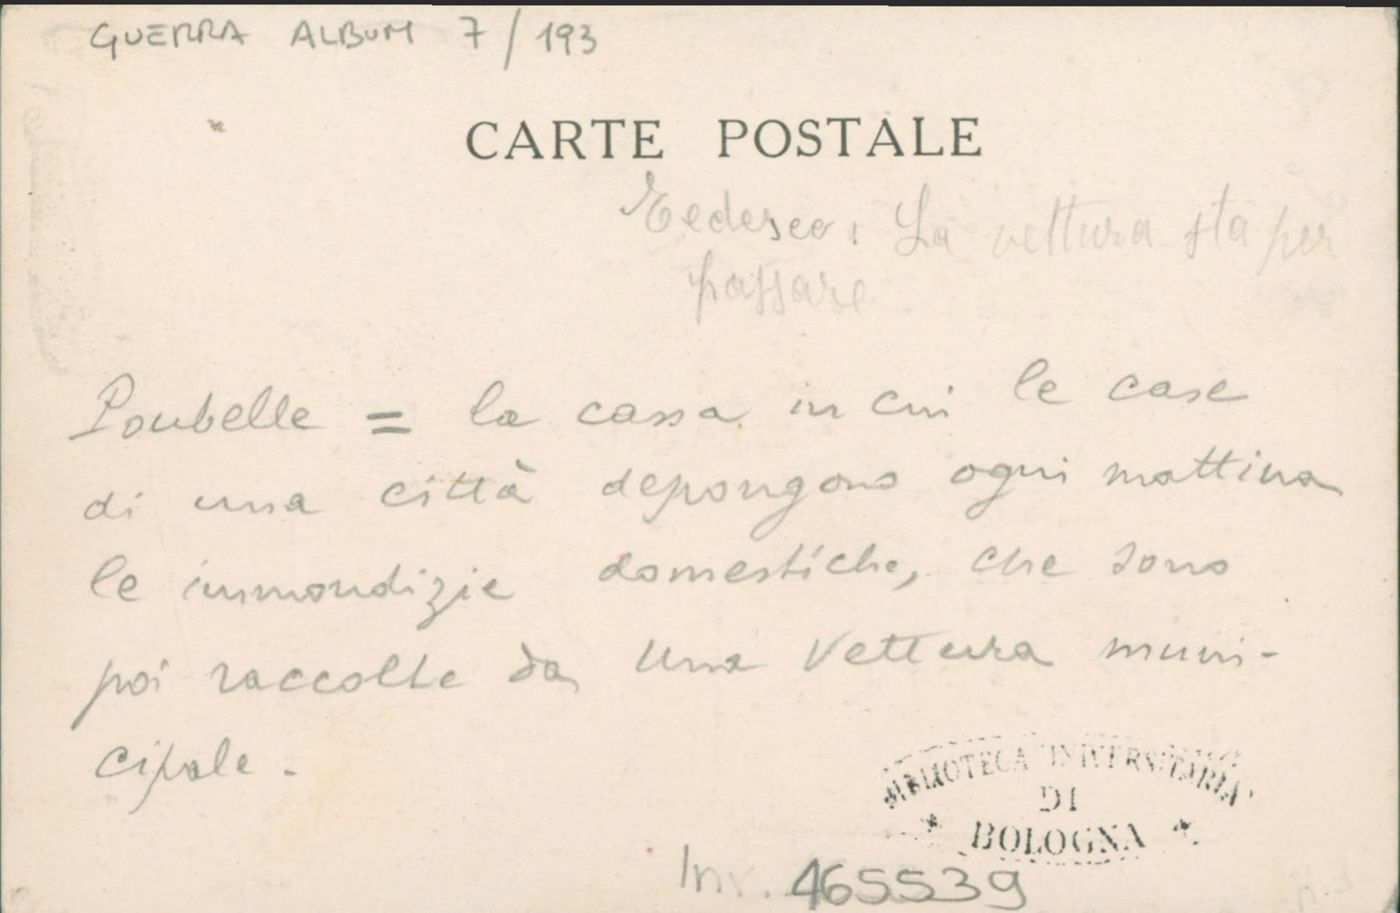 GUERRA ALBUM 7/193
CARTE POSTALE
Tedesco: La vettura sta per
passare
Poubelle = la cassa in cui le case
di una città depongono ogni mattina
le immondizie domestiche, che sono
poi raccolte da una vettura muni-
cipale.
BIBLIOTECA UNIVERSITARIA
DI
BOLOGNA
Inv. 465539